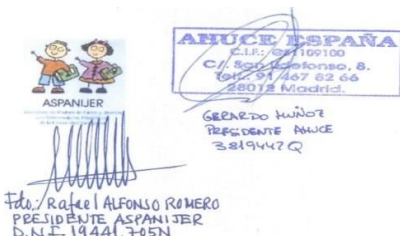 ASPANIJER
AHUCE ESPAÑA
C.I.F.: G81109100
C/. San Ildefonso, 8.
Telf.: 91 467 82 66
28012 Madrid.
GERARDO MUÑOZ
PRESIDENTE AHUCE
3819447Q
Fdo: Rafael ALFONSO ROMERO
PRESIDENTE ASPANIJER
D.N.I. 19441.705N